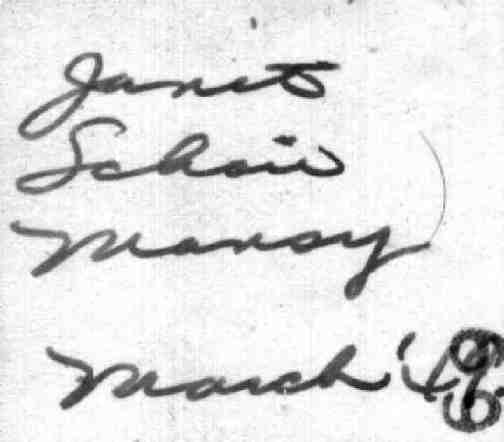 Janet
Schoir
Mansy
March '48